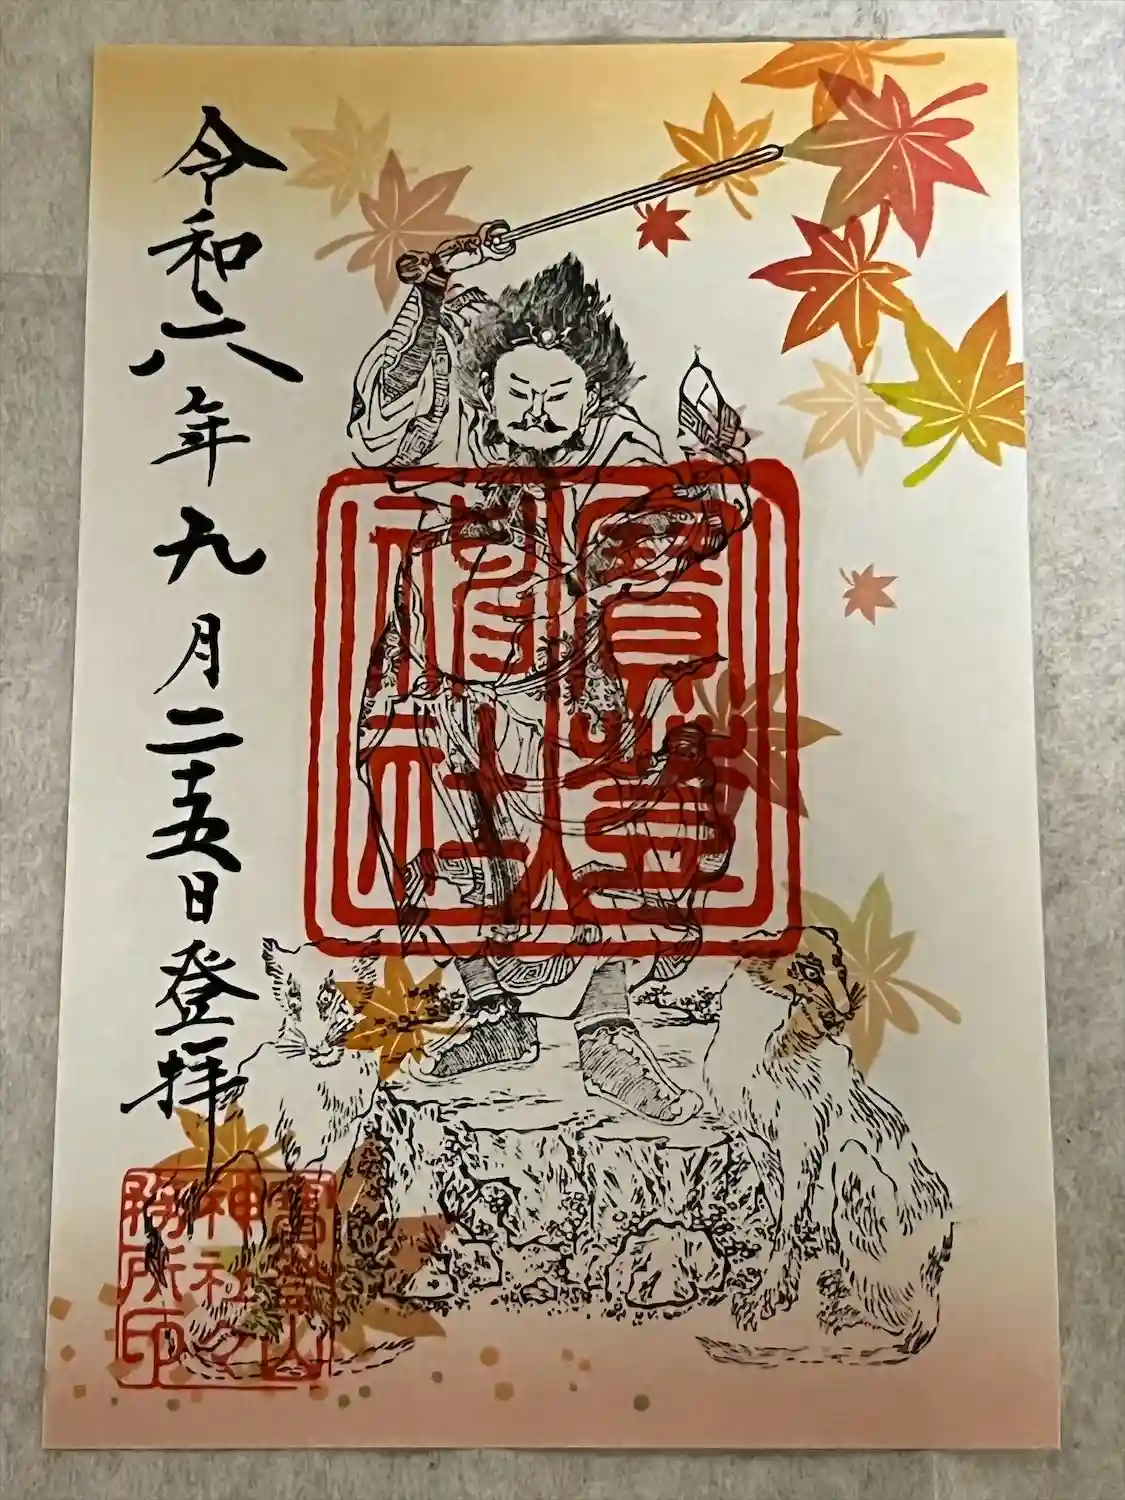 寶登
神社
令和六年九月二十五日登拝
寶登山
神社々
務所印